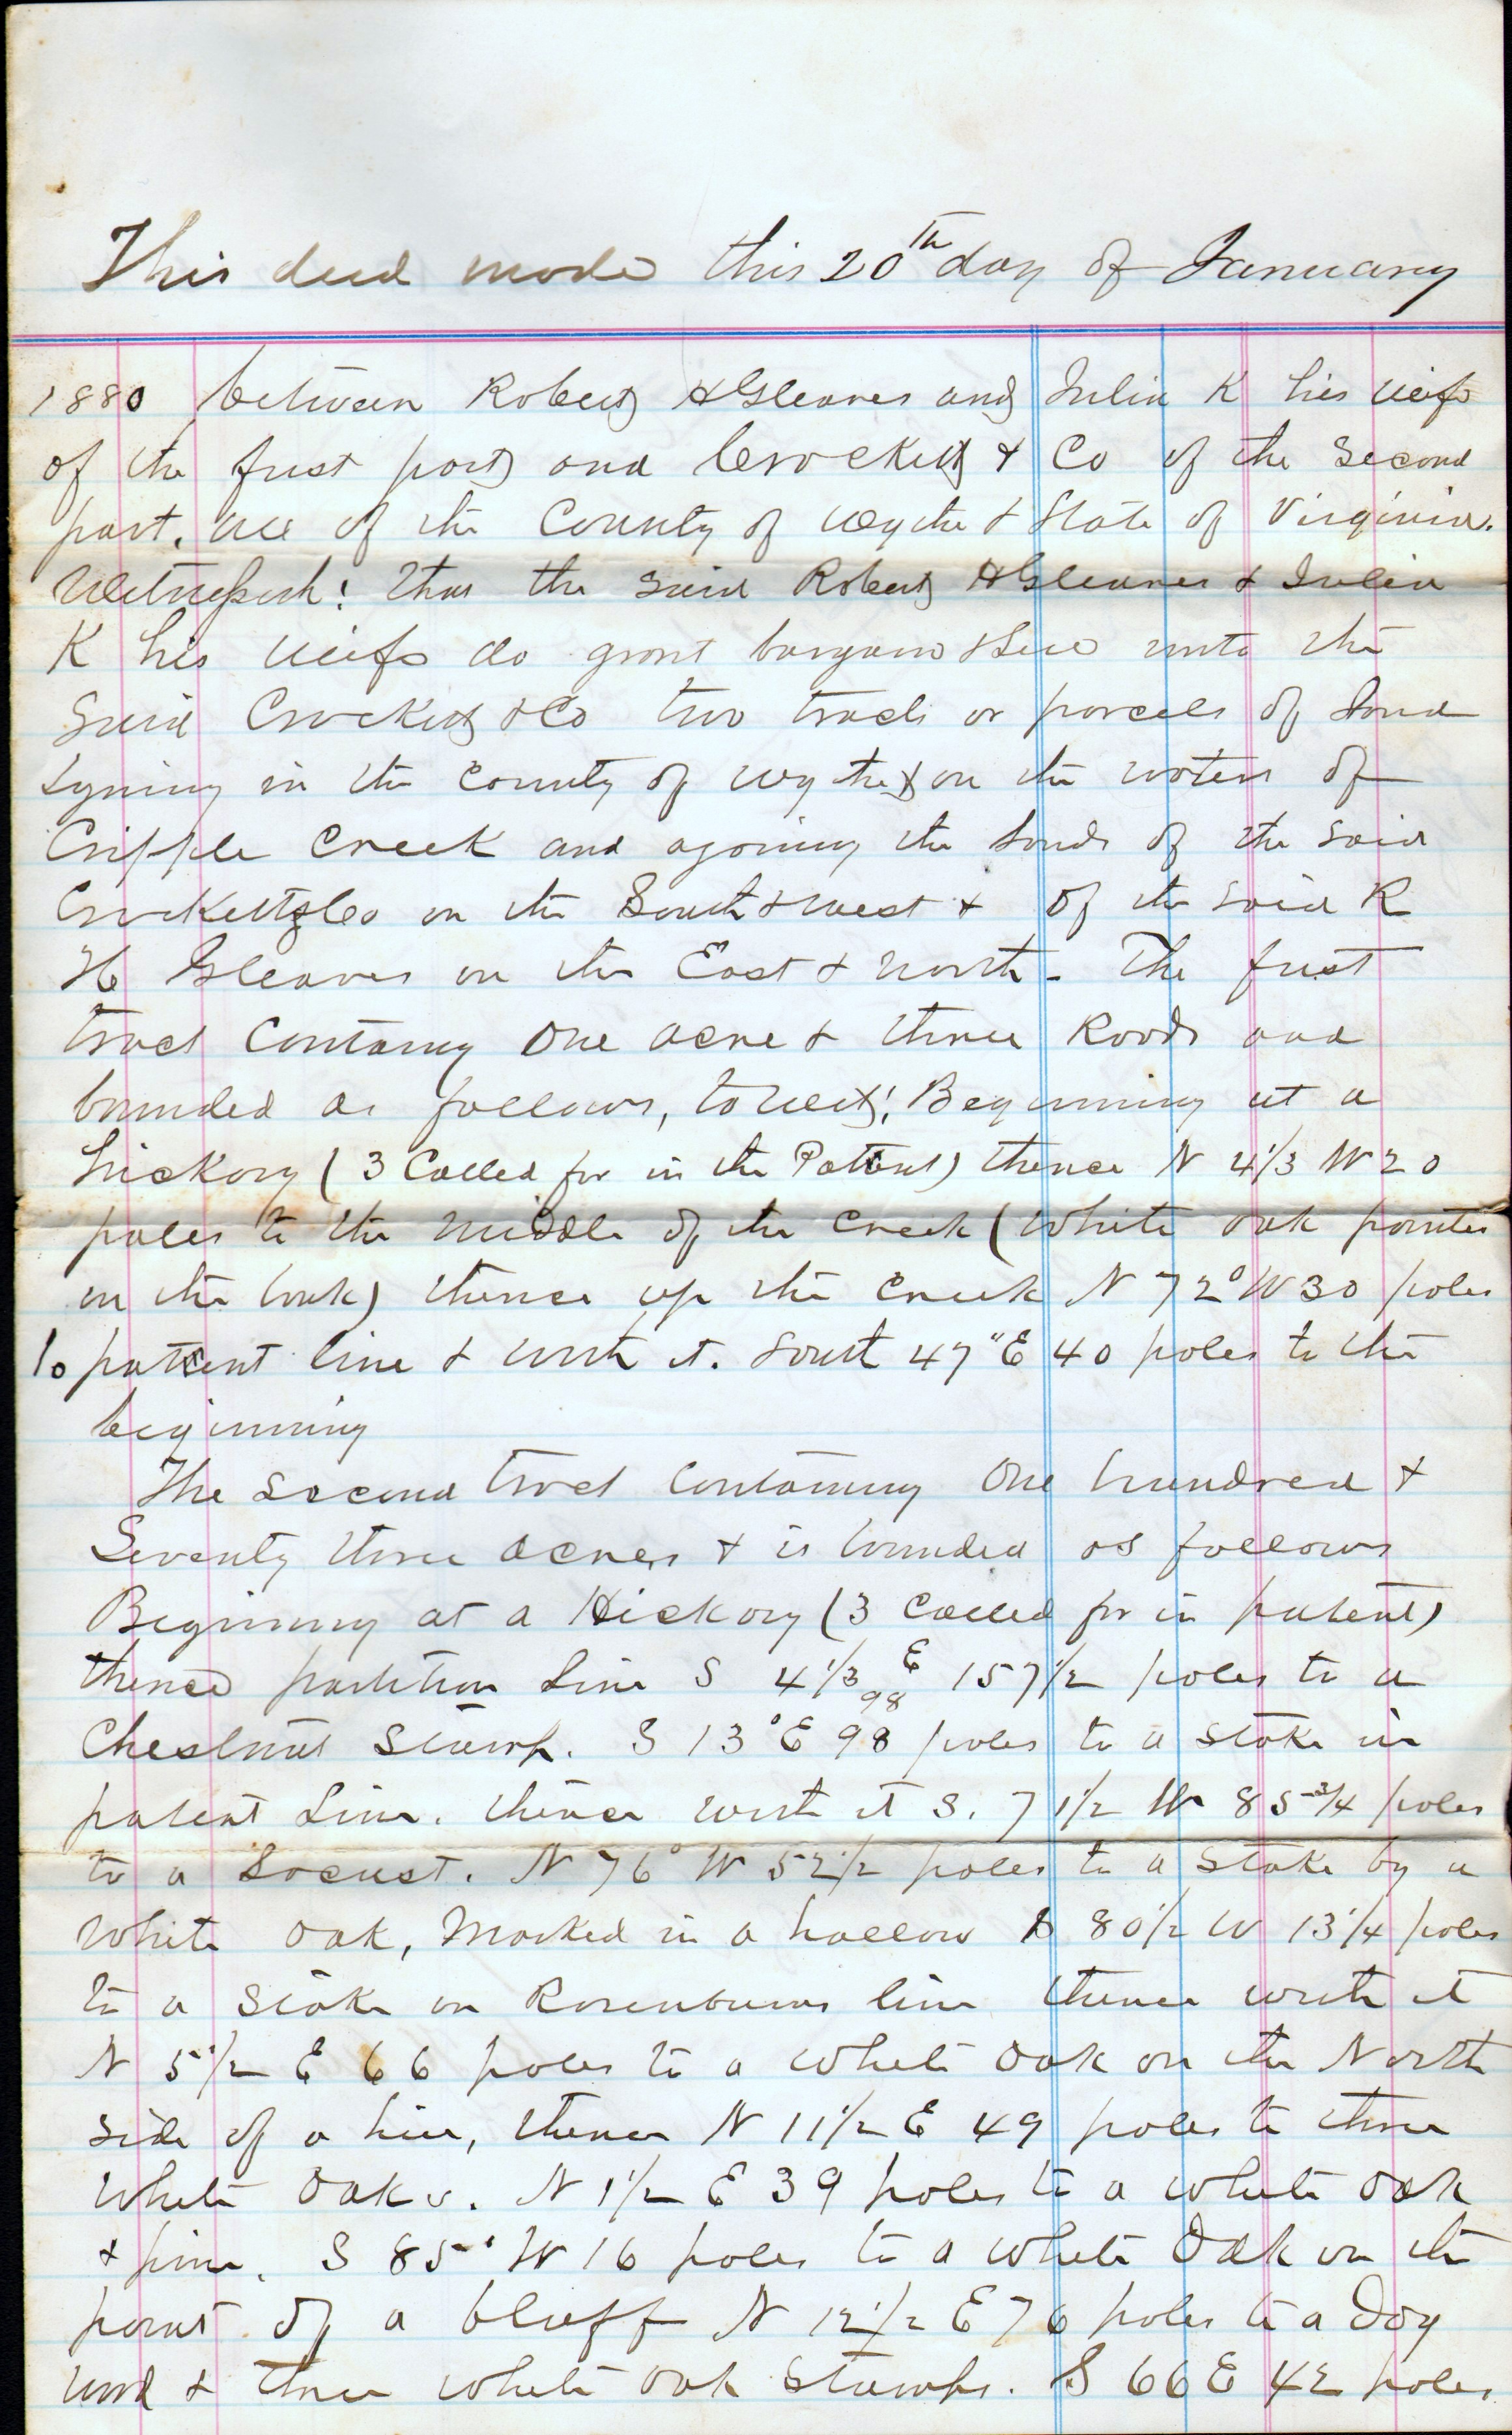 This deed made this 20th day of January
1880 between Robert H Gleaves and Julia K his wife
of the first part and Crockett & Co of the Second
part, all of the County of Wythe & State of Virginia.
Witnesseth: That the said Robert H Gleaves & Julia
K his wife do grant bargain & Sell unto the
Said Crockett & Co two tracts or parcels of Land
Lyning in the County of Wythe & on the waters of
Cripple Creek and ajoining the Lands of the Said
Crockett & Co on the South & West & of the Said R
H Gleaves on the East & North - The first
tract Containg One acre & three Roods and
bounded as follows, to wit; Beginning at a
hickory (3 Called for in the Patent) thence N 4 1/3 W 20
poles to the middle of the Creek (White oak pointer
on the bank) thence up the Creek N 72° W 30 poles
to patent line & with it. South 47" E 40 poles to the
beginning
The Second tract Containing One hundred &
Seventy three acres & is bounded as follows
Beginning at a Hickory (3 Called for in patent)
thence partition Line S 4 1/3 E 157 1/2 poles to a
98
Chestnut Stump. S 13° E 98 poles to a Stake in
patent Line. thence with it S. 7 1/2 W 85 3/4 poles
to a Locust. N 76° W 52 1/2 poles to a Stake by a
White Oak, Marked in a hollow S 80 1/2 W 13 1/4 poles
to a Stake on Rosenbums line thence with it
N 5 1/2 E 66 poles to a White Oak on the North
side of a hill, thence N 11 1/2 E 49 poles to three
White Oaks. N 1 1/2 E 39 poles to a White Oak
& pine. S 85° W 16 poles to a White Oak on the
point of a bluff N 12 1/2 E 76 poles to a Dog
wood & three White Oak Stumps. S 66 E 42 poles